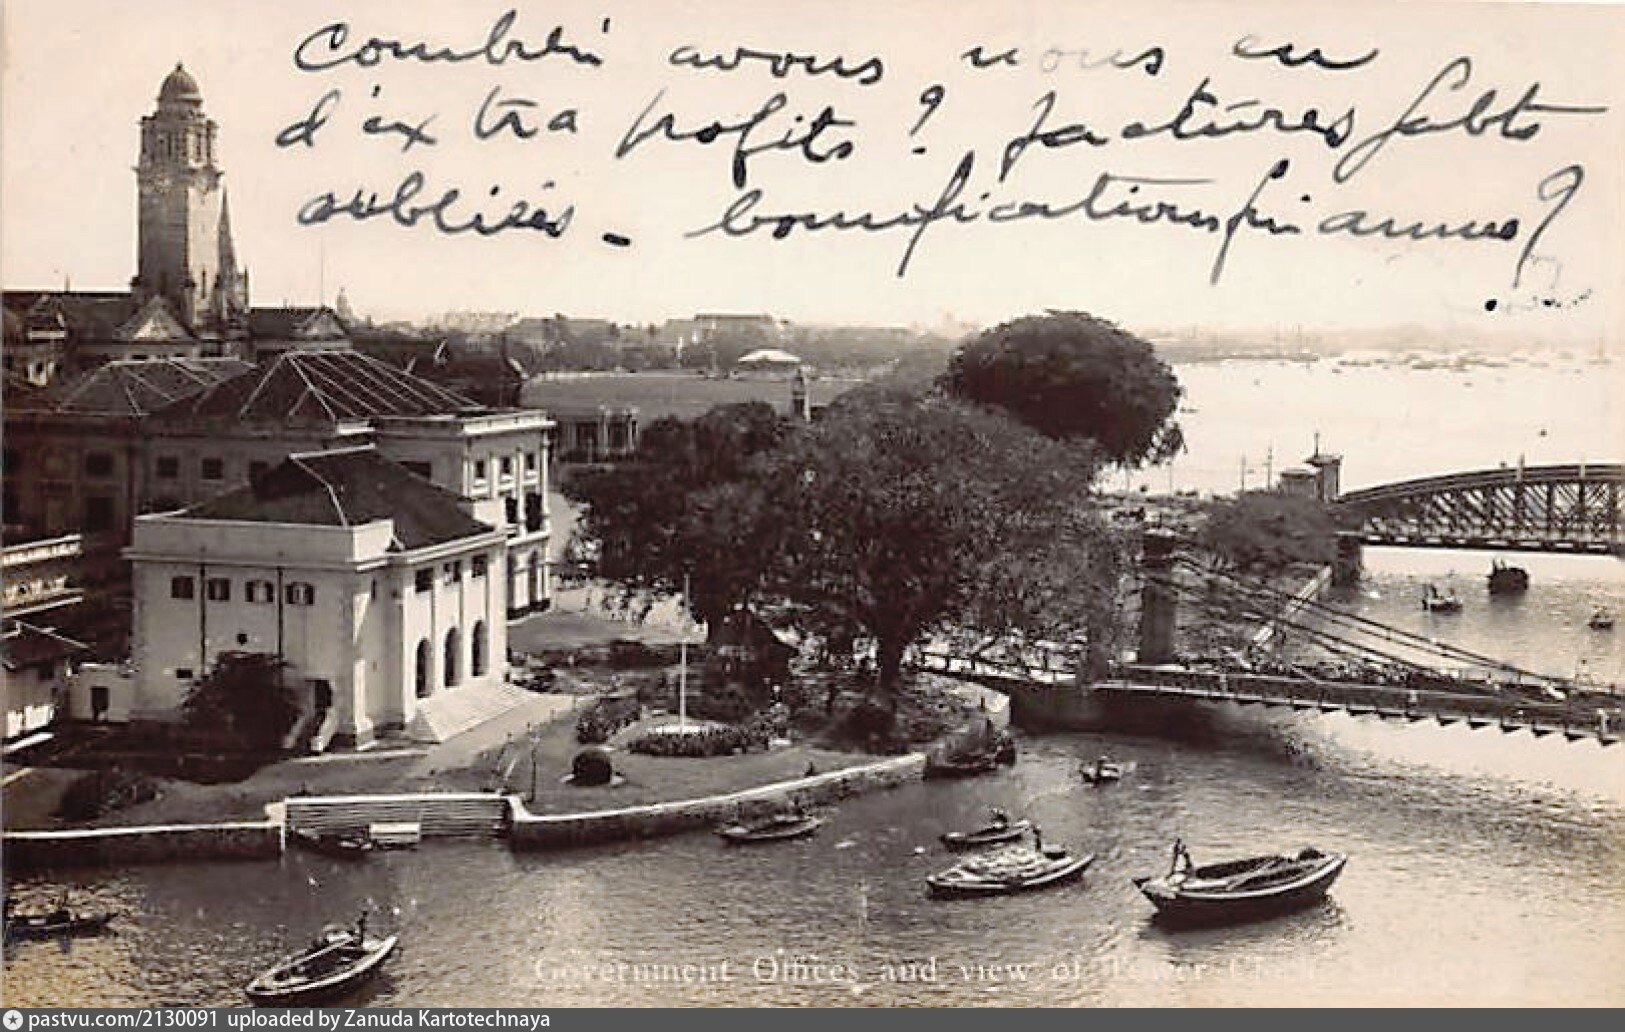 Combien avons nous eu
d'extra profits? factures
oubliées - bonifications fin année?
Government Offices and view of Tower
pastvu.com/2130091 uploaded by Zanuda Kartotechnaya